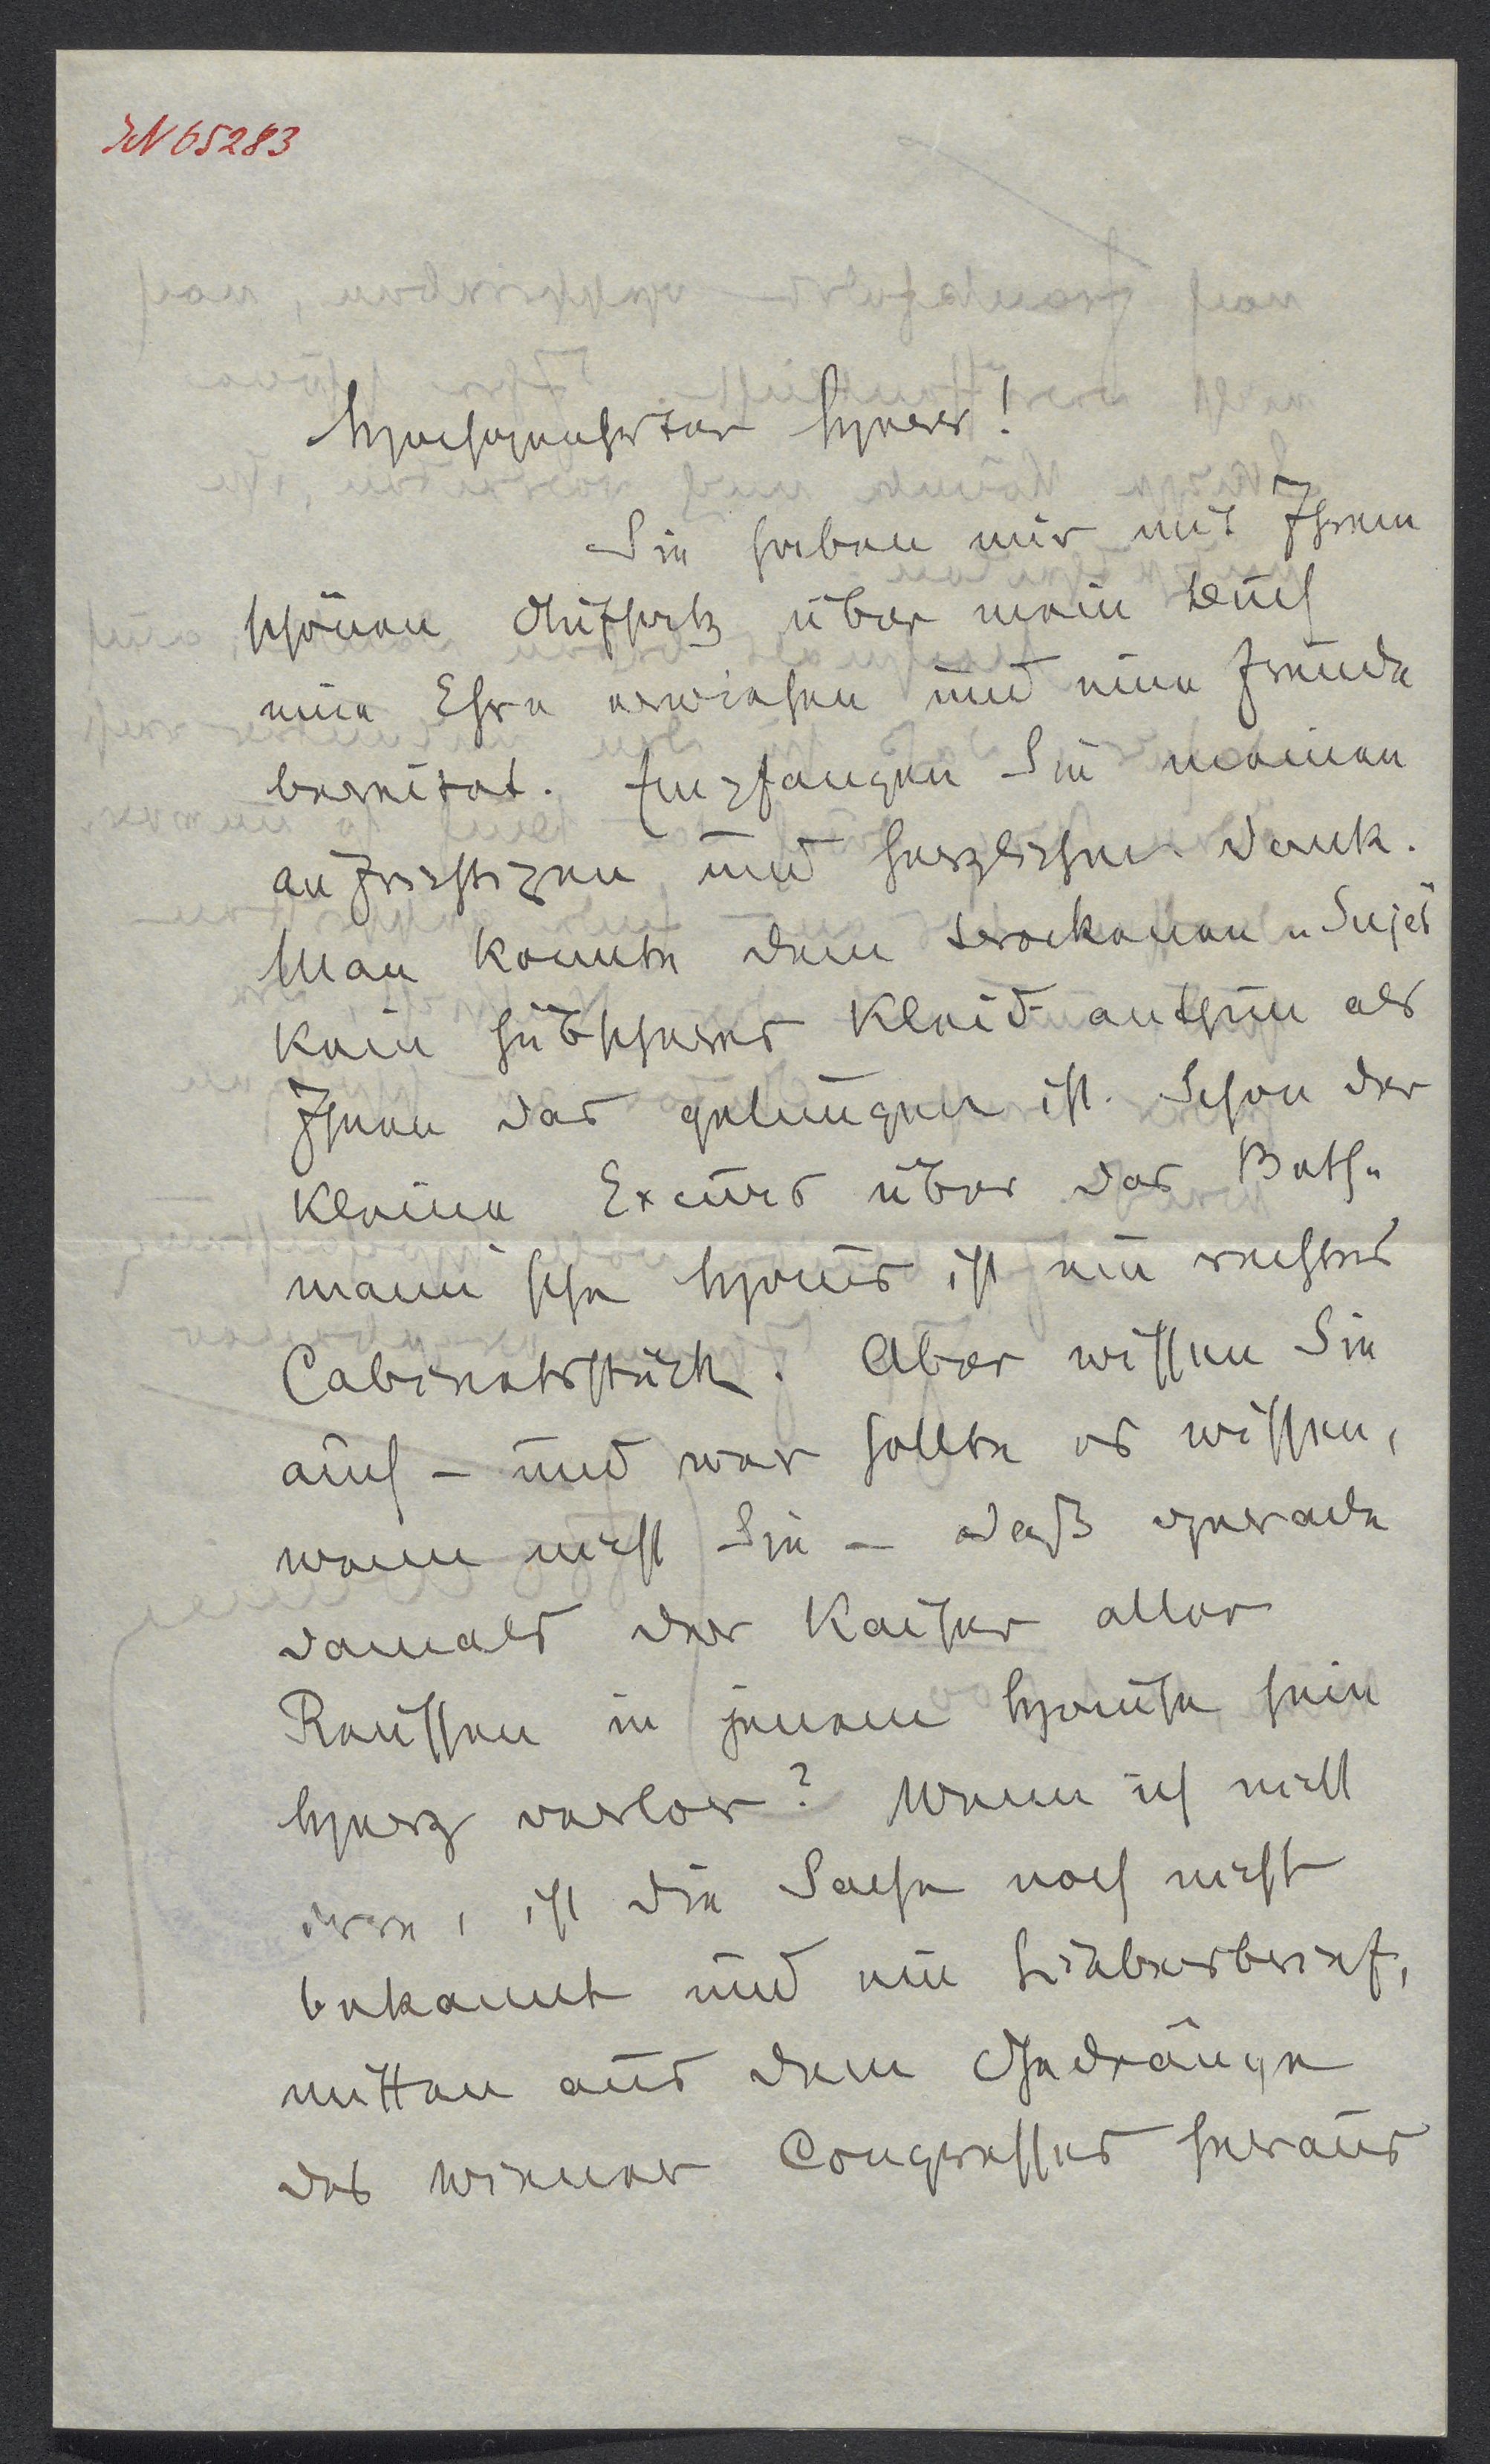 IN 65283
Hochgeehrter Herr!
Sie haben mir mit Ihrem
schönen Aufsatz über mein Buch
eine Ehre erwiesen und eine Freude
bereitet. Empfangen Sie meinen
aufrichtigen und herzlichen Dank.
Man konnte dem trockenen „Sujet"
kein hübscheres Kleid anthun als
Ihnen das gelungen ist. Schon der
kleine Excurs über das Beth„
mann'sche Haus ist ein rechtes
Cabinetsstück. Aber wissen Sie
auch – und wer sollte es wissen,
wenn nicht Sie – daß gerade
damals der Kaiser aller
Reussen in jenem Hause sein
Herz verlor? Wenn ich nicht
irre, ist die Sache noch nicht
bekannt und ein Liebesbrief,
mitten aus dem Gedränge
des Wiener Congresses heraus